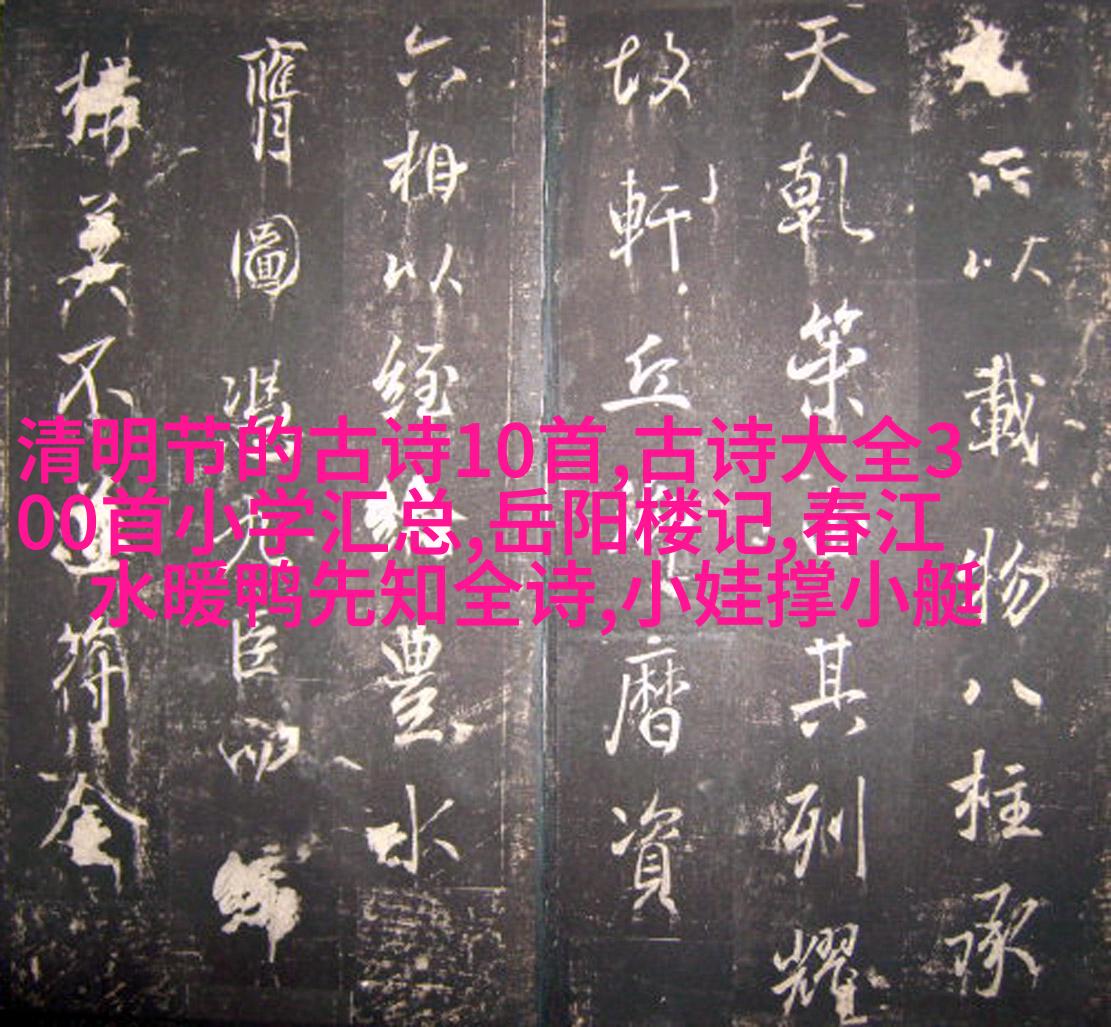 清明节的古诗10首,古诗大全3
00首小学汇总,岳阳楼记,春江
水暖鸭先知全诗,小娃撑小艇
所以載物八柱承
天乾策其列耀
故軒丘曆資
六相以經豐水
膺圖馮九臣
構莫不道符